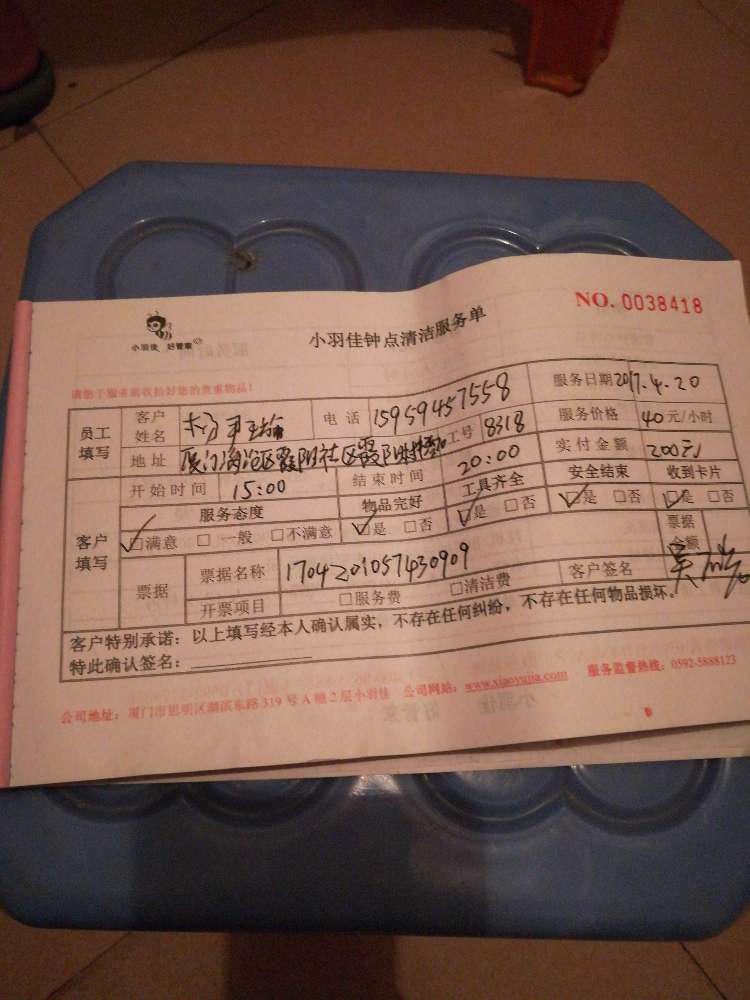 NO. 0038418
小羽佳 好管家
小羽佳钟点清洁服务单
请您于服务前收拾好您的贵重物品!
员工填写 客户姓名 电话 15959457558 服务日期 2017.4.20
地址 厦门海沧区霞阳社区霞阳 工号 8318 服务价格 40元/小时
开始时间 15:00 结束时间 20:00 实付金额 200元
客户填写 服务态度 物品完好 工具齐全 安全结束 收到卡片
☑满意 □一般 □不满意 ☑是 □否 ☑是 □否 ☑是 □否 ☑是 □否
票据 票据名称 1704201057430909 票据金额
开票项目 □服务费 □清洁费 客户签名 吴
客户特别承诺:以上填写经本人确认属实,不存在任何纠纷,不存在任何物品损坏.
特此确认签名:
公司地址:厦门市思明区湖滨东路319号A幢2层小羽佳 公司网站:www.xiaoyujia.com 服务监督热线:0592-5888123